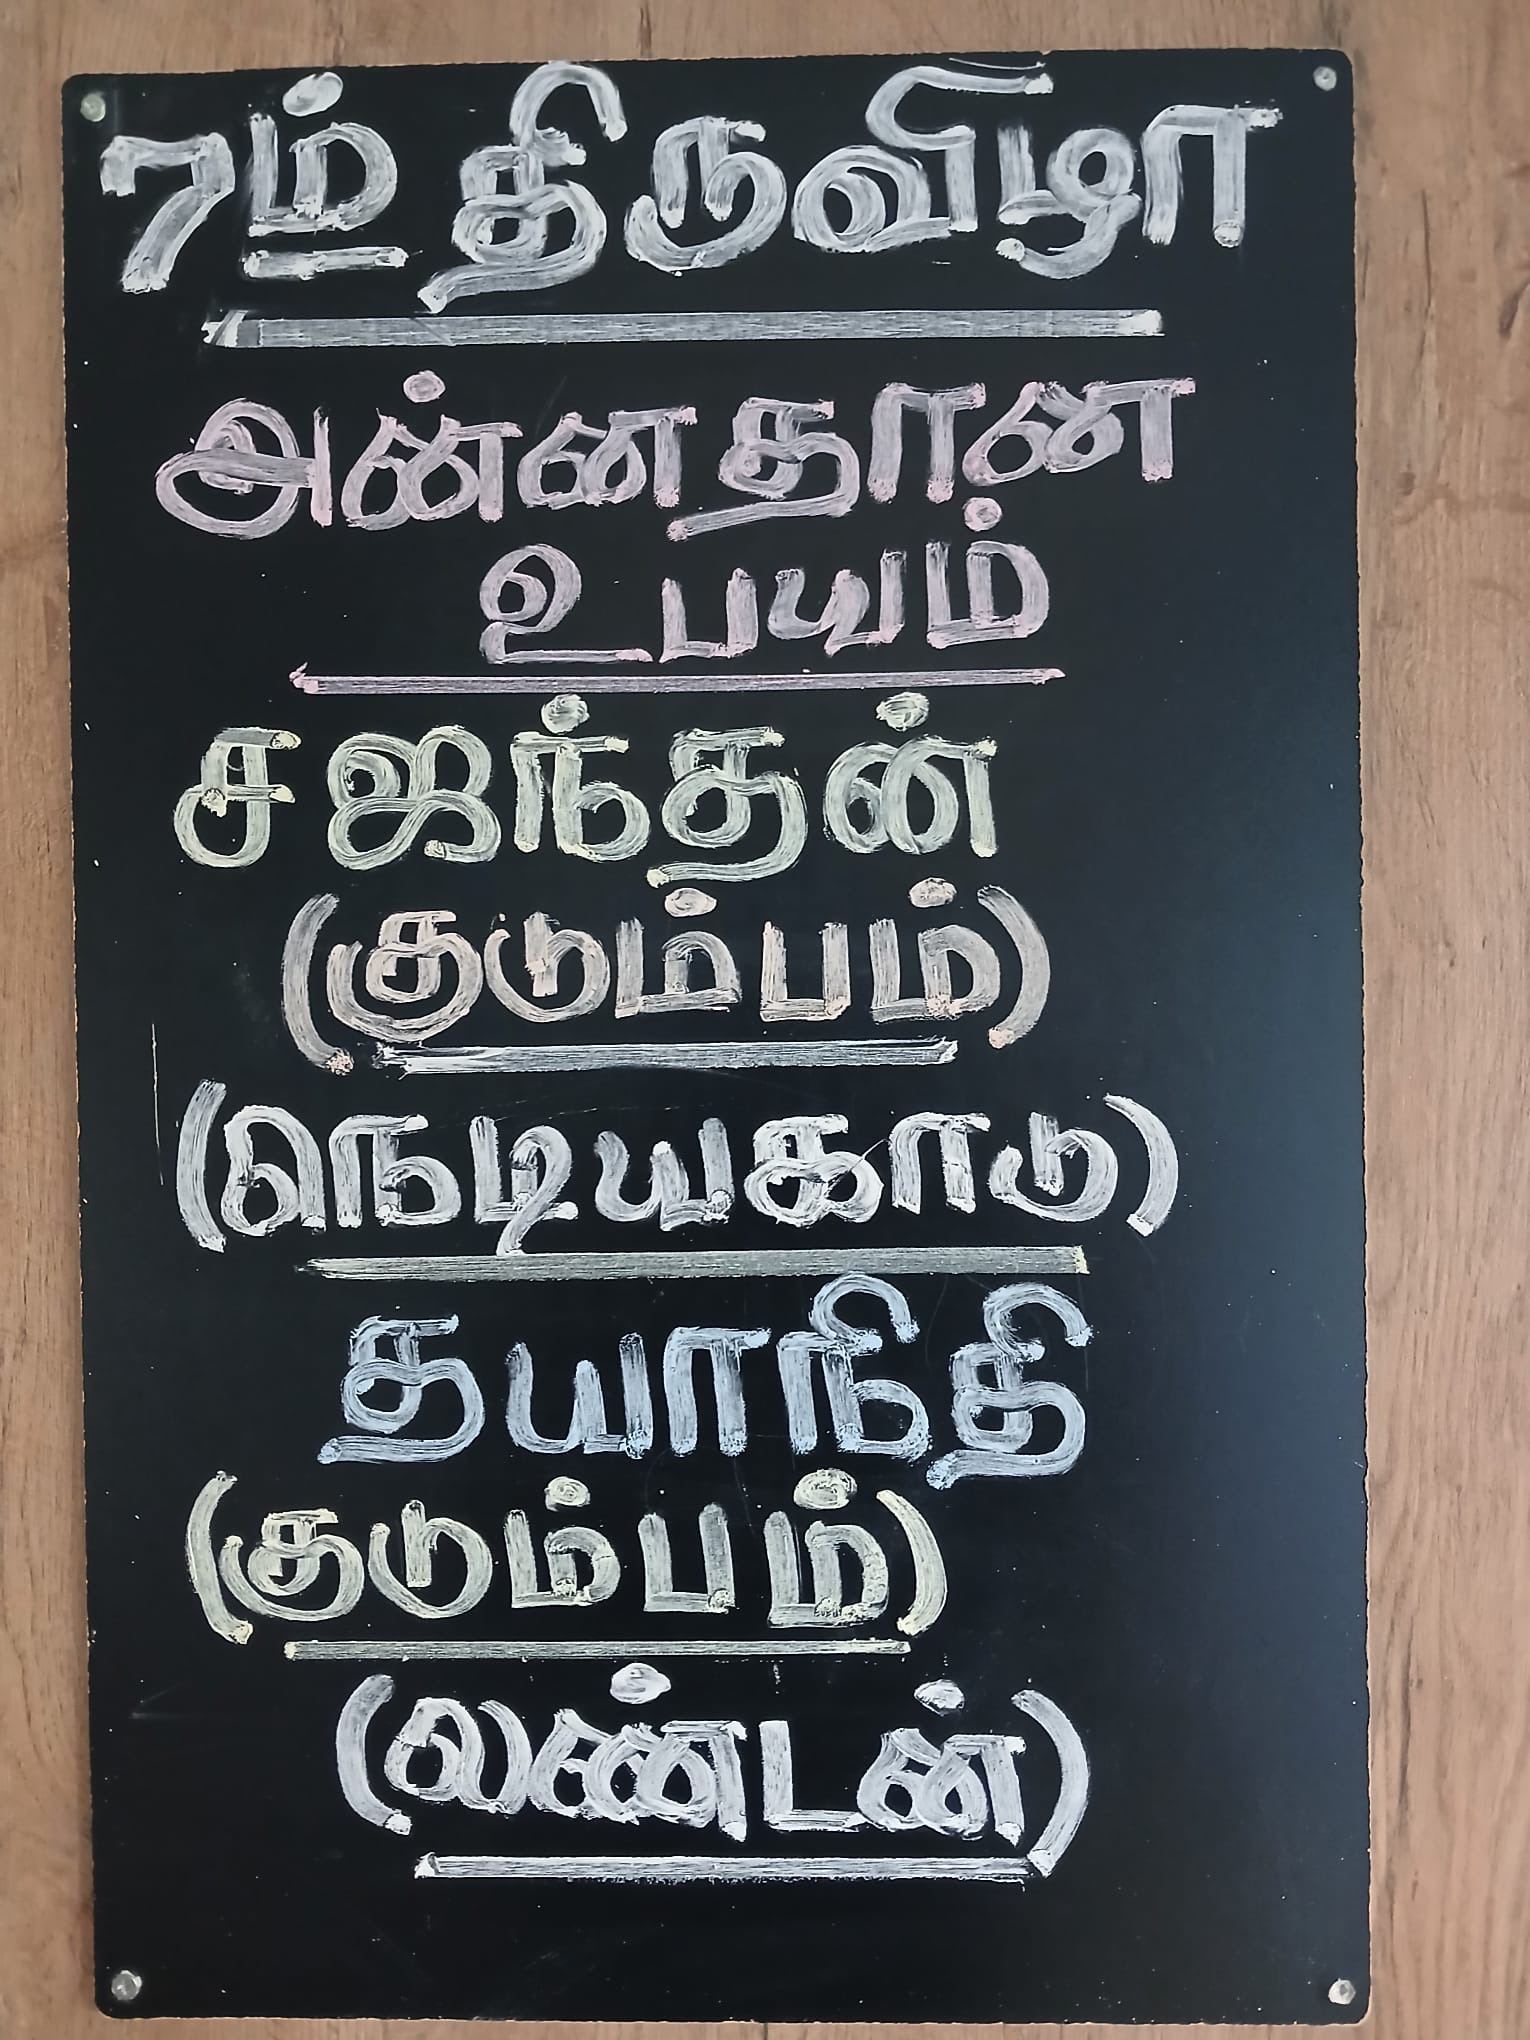 7ம் திருவிழா
அன்னதான
உபயம்
சஜந்தன்
(குடும்பம்)
(நெடியகாடு)
தயாநிதி
(குடும்பம்)
(லண்டன்)